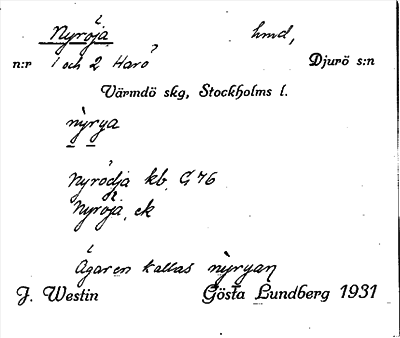 Nyröja hmd,
n:r 1 och 2 Harö Djurö s:n
Värmdö skg, Stockholms l.
nỳrya
Nyrödja kb. G 76
Nyröja, ek
Ägaren kallas nỳryaṇ
J. Westin Gösta Lundberg 1931